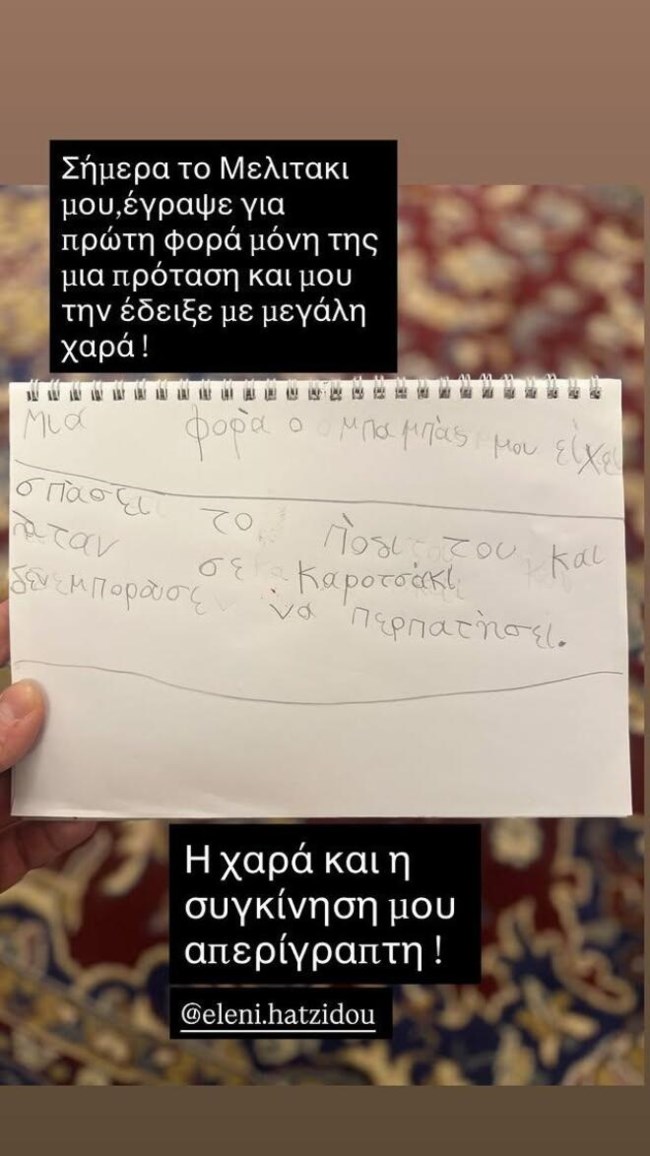 Σήμερα το Μελιτακι
μου,έγραψε για
πρώτη φορά μόνη της
μια πρόταση και μου
την έδειξε με μεγάλη
χαρά !
μια φορὰ ο μπαμπὰς μου είχε
σπὰσει το πὸδι του και
ὴταν σε καροτσὰκι
δενεμπορὰσε νὰ περπατὴσει.
Η χαρά και η
συγκίνηση μου
απερίγραπτη !
@eleni.hatzidou